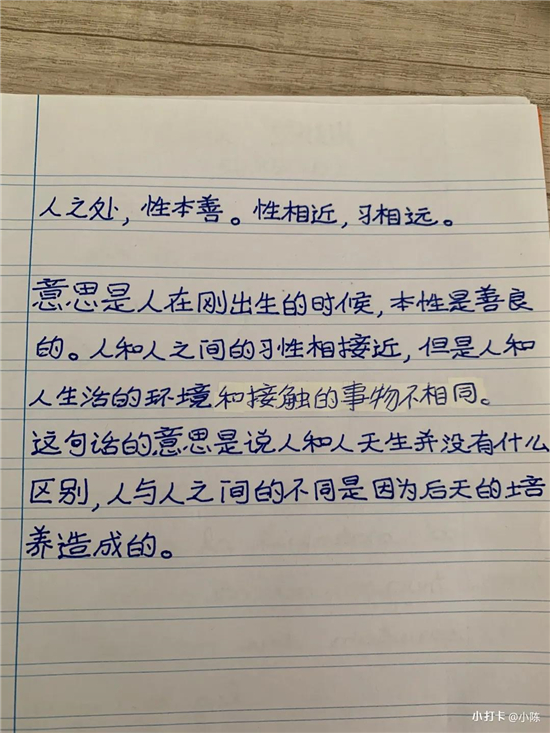 人之处，性本善。性相近，习相远。
意思是人在刚出生的时候，本性是善良
的。人和人之间的习性相接近，但是人和
人生活的环境和接触的事物不相同。
这句话的意思是说人和人天生并没有什么
区别，人与人之间的不同是因为后天的培
养造成的。
小打卡 @小陈